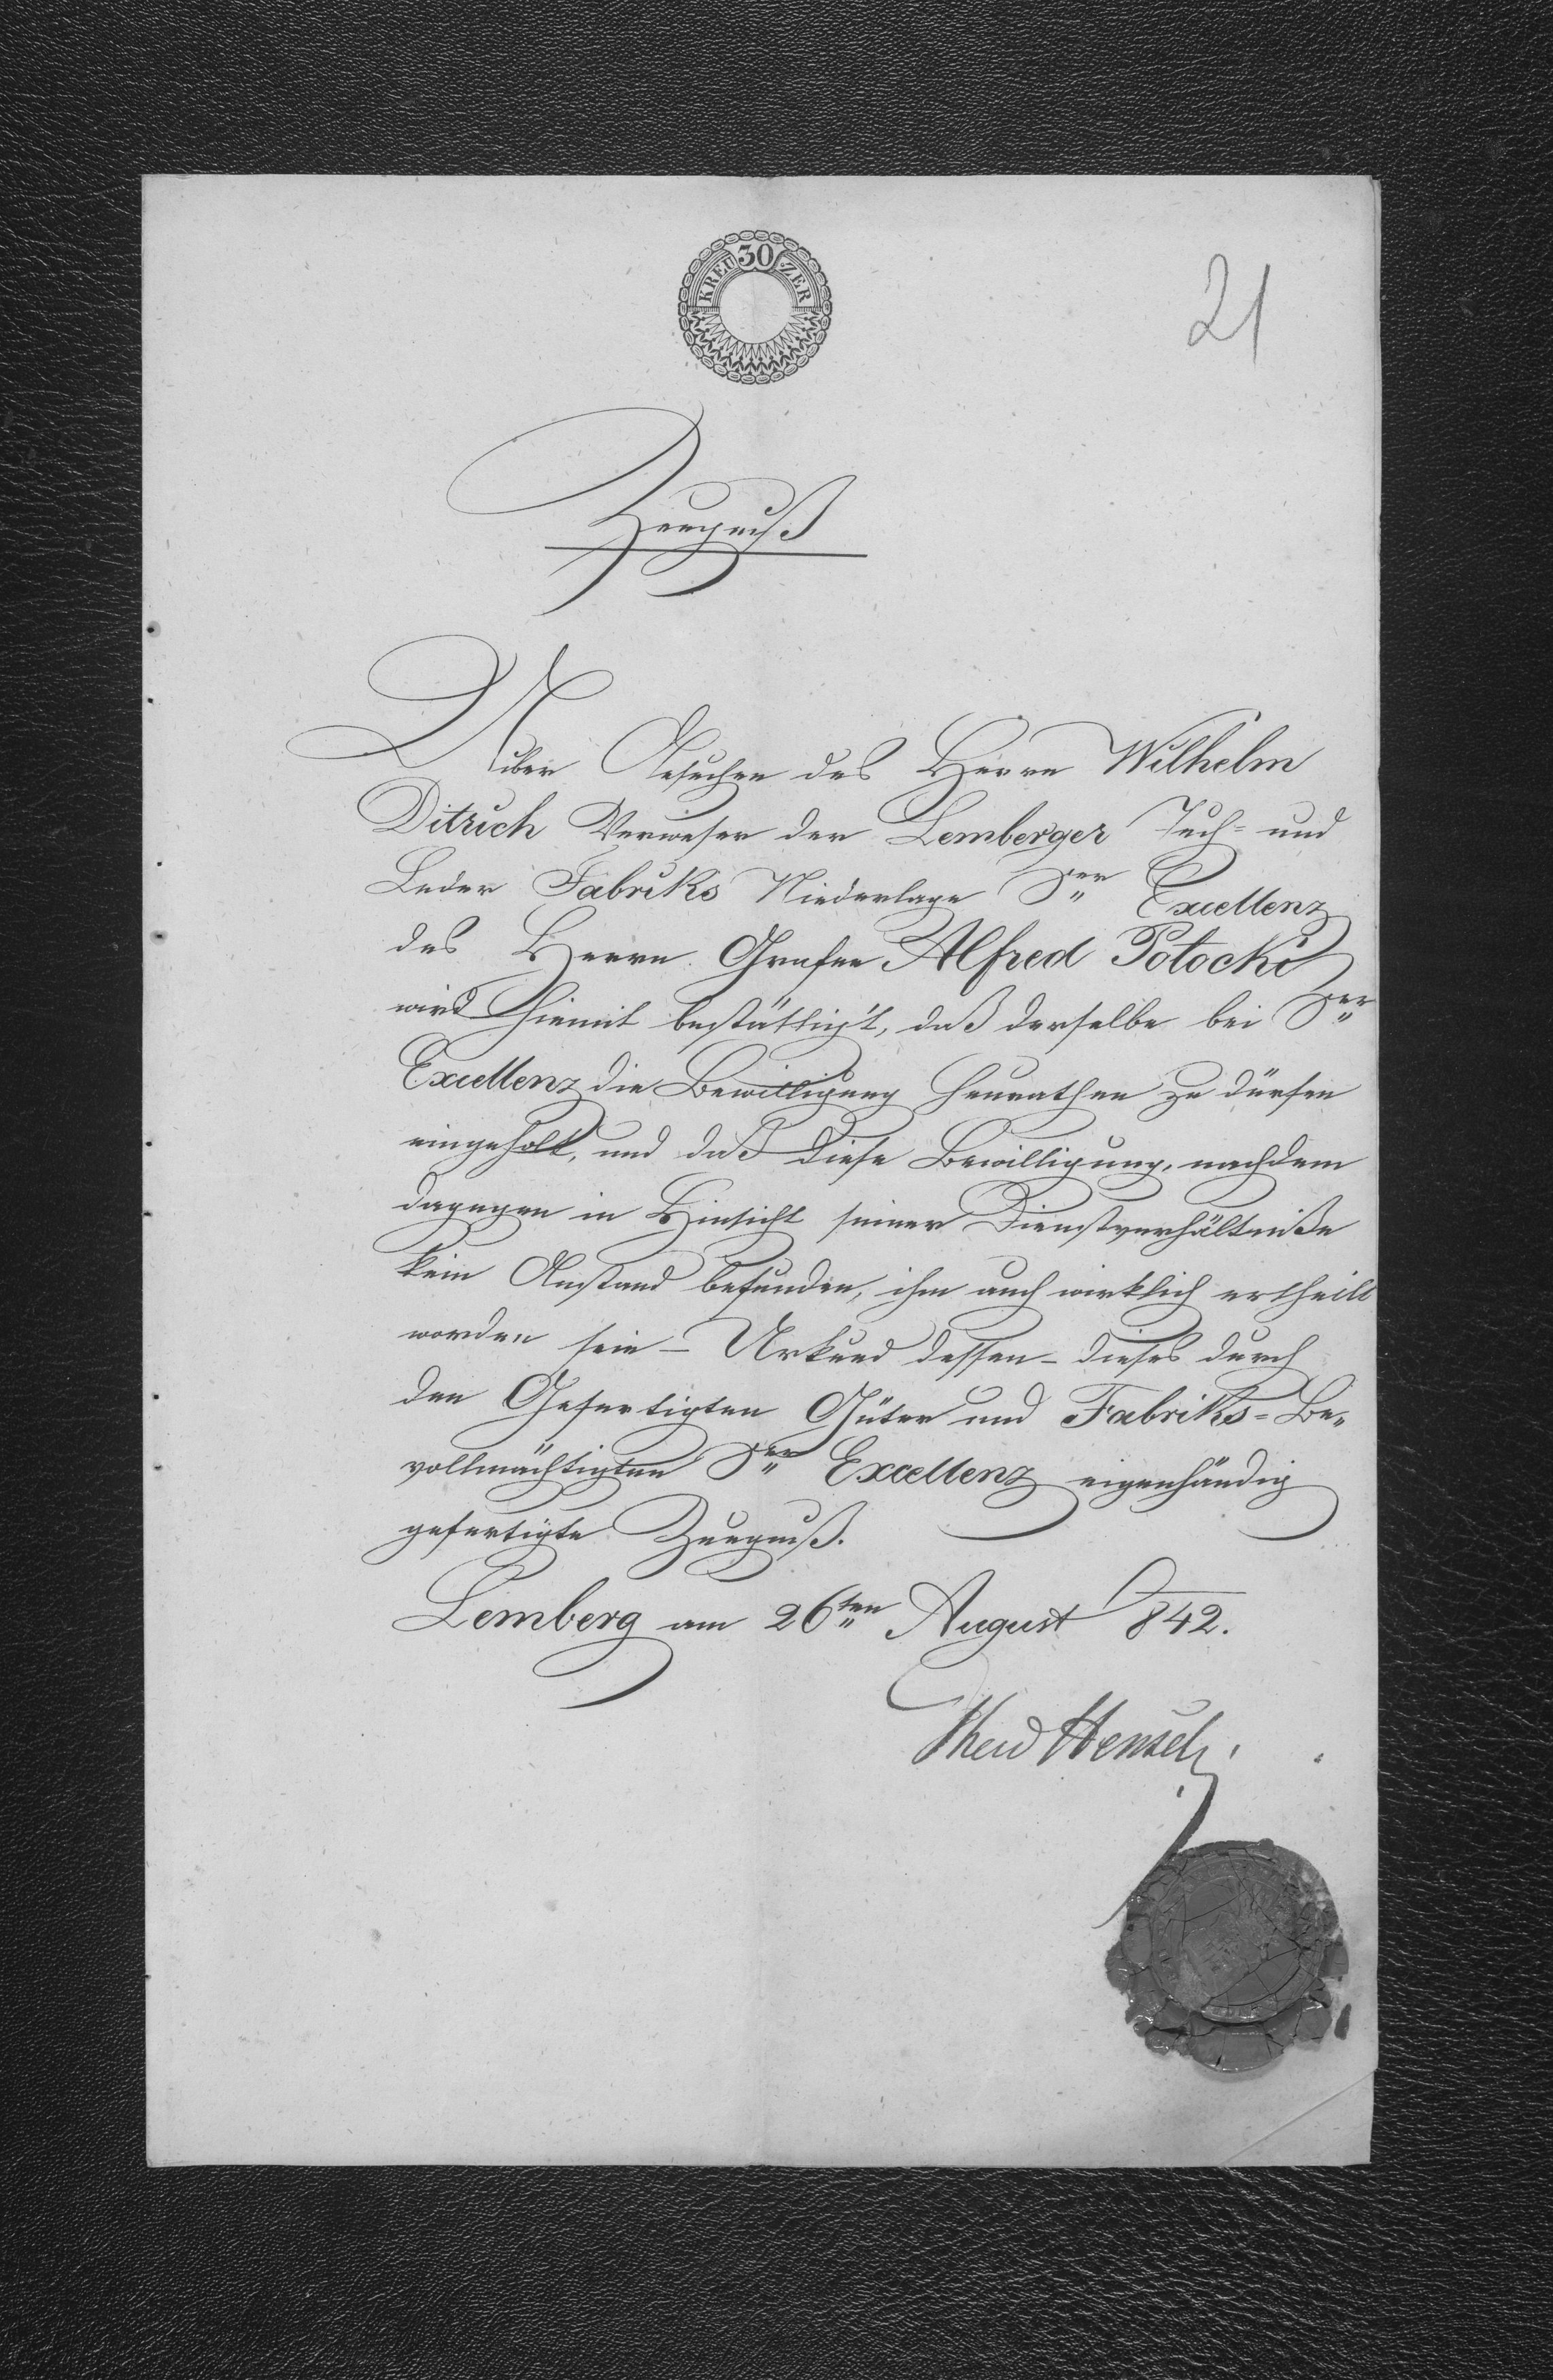 30
KREUZER
21
Zeugniß
Uiber Ansuchen des Herrn Wilhelm
Ditrich Verweser der Lemberger Tuch= und
Leder Fabriks Niederlage Sr Excellenz
des Herrn Grafen Alfred Potocki
wird hiemit bestättigt, daß derselbe bei Sr
Excellenz die Bewilligung heurathen zu dürfen
eingeholt, und daß diese Bewilligung, nachdem
dagegen in Hinsicht seiner Dienstverhältniße
kein Anstand befunden, ihm auch wirklich ertheilt
worden sein – Urkund dessen – dieses durch
den Gefertigten Güter und Fabriks=Be„
vollmächtigten Sr Excellenz eigenhändig
gefertigte Zeugniß.
Lemberg am 26ten August 842.